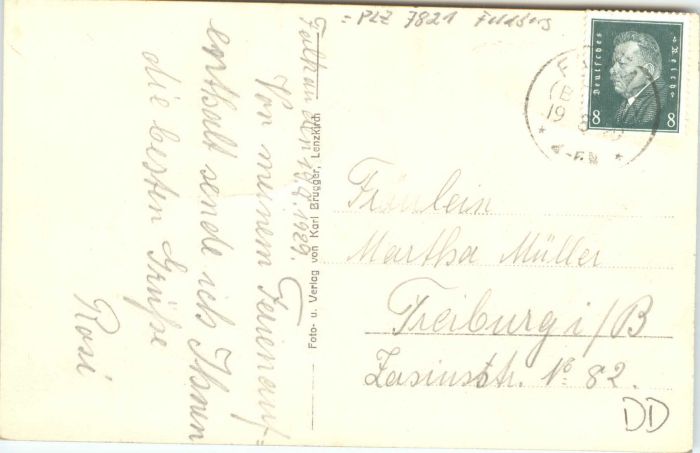 = PLZ 7821 Feldberg
Deutsches Reich
8 8
19
Falkau den 19.8.1929.
Von meinem Ferienauf=
enthalt sende ich Ihnen
die besten Grüße
Rosi
Foto- u. Verlag von Karl Brugger, Lenzkirch
Fräulein
Martha Müller
Freiburg i/B
Zasiusstr. No 82.
DD